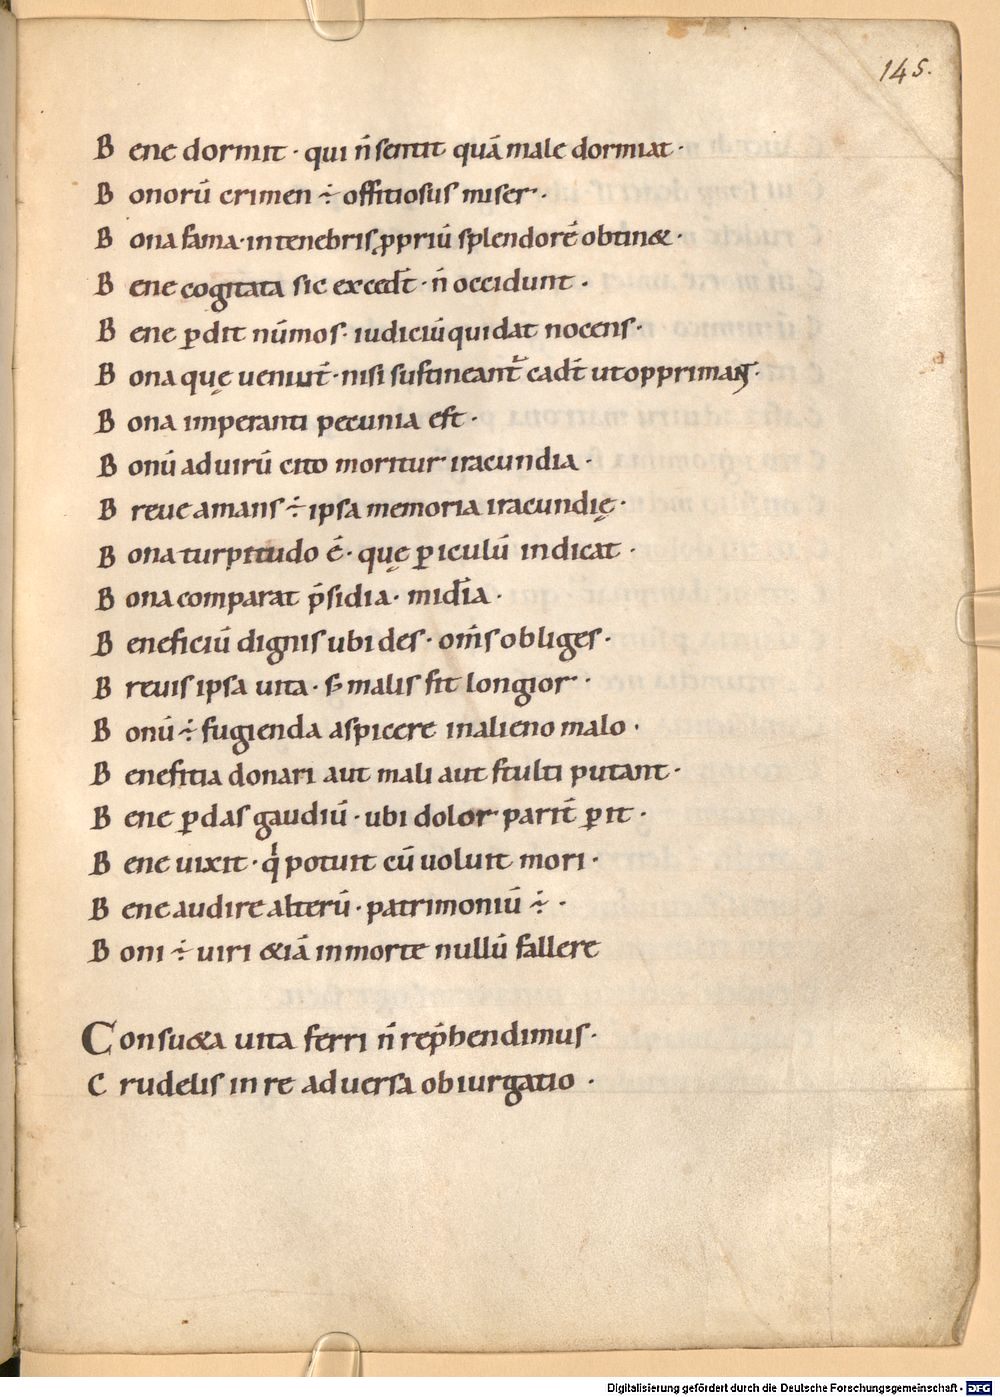 145.
B ene dormit · qui n̄ sentit quā male dormiat ·
B onorū crimen ÷ offitiosus miser ·
B ona fama · in tenebris ꝓpriū splendorē obtin& ·
B ene cogitata sic excedt̄ · n̄ occidunt ·
B ene ꝑdit nūmos · iudiciū qui dat nocens ·
B ona quę ueniut̄ · nisi sustineant̄ cadt̄ ut opprimant᷑ ·
B ona imperanti pecunia est ·
B onū ad uirū cito moritur iracundia ·
B reue amans ÷ ipsa memoria iracundię ·
B ona turpitudo ē · quę ꝑiculū indicat ·
B ona comparat p̄sidia · mid̄ia ·
B eneficiū dignis ubi des · om̄s obliges ·
B reuis ipsa uita · sꝫ malis fit longior ·
B onū ÷ fugienda aspicere in alieno malo ·
B enefitia donari aut mali aut stulti putant ·
B ene ꝑdas gaudiū · ubi dolor parit̄ ꝑit ·
B ene uixit · qͥ potuit cū uoluit mori ·
B ene audire alterū · patrimoniū ÷ ·
B oni ÷ uiri &iā in morte nullū fallere
C onsu&a uita ferri n̄ rep̄hendimus ·
C rudelis in re aduersa obiurgatio ·
Digitalisierung gefördert durch die Deutsche Forschungsgemeinschaft - DFG